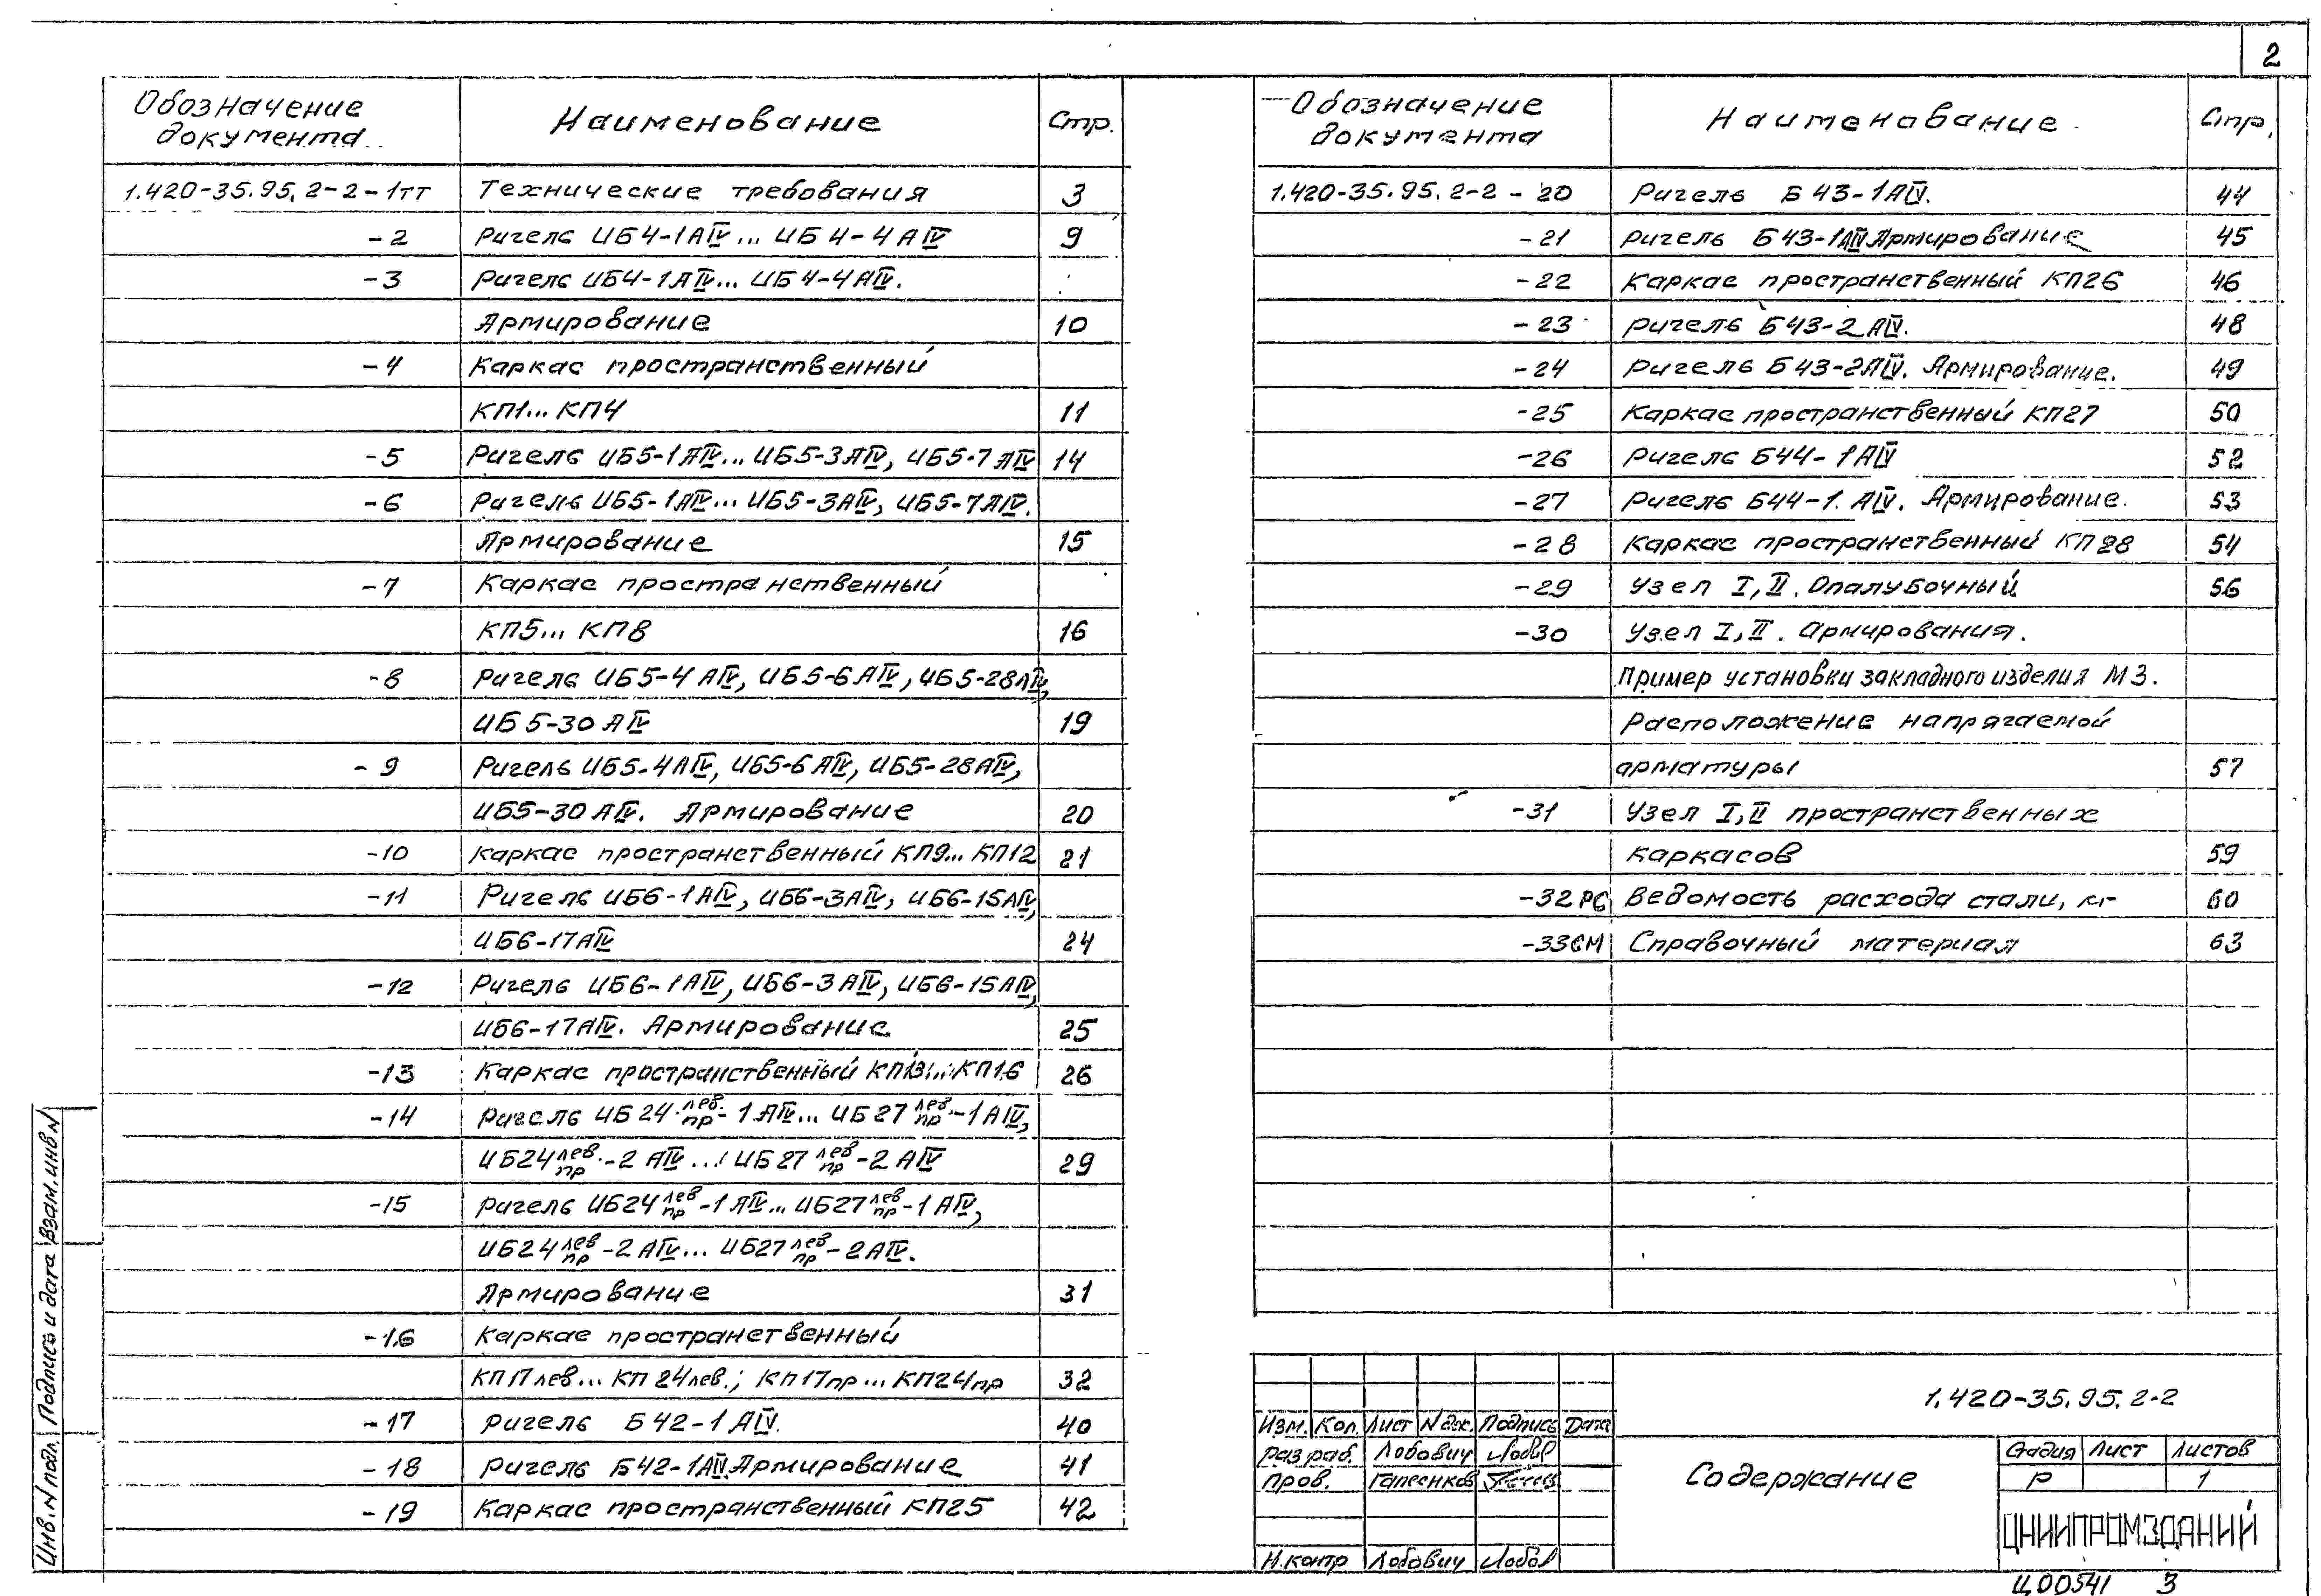 2
Обозначение документа Наименование Стр.
1.420-35.95.2-2-1тт Технические требования 3
-2 Ригель ИБ4-1АIV... ИБ4-4АIV 9
-3 Ригель ИБ4-1АIV... ИБ4-4АIV.
Армирование 10
-4 Каркас пространственный
КП1... КП4 11
-5 Ригель ИБ5-1АIV... ИБ5-3АIV, ИБ5-7АIV 14
-6 Ригель ИБ5-1АIV... ИБ5-3АIV, ИБ5-7АIV.
Армирование 15
-7 Каркас пространственный
КП5... КП8 16
-8 Ригель ИБ5-4АIV, ИБ5-6АIV, ИБ5-28АIV,
ИБ5-30АIV 19
-9 Ригель ИБ5-4АIV, ИБ5-6АIV, ИБ5-28АIV,
ИБ5-30АIV. Армирование 20
-10 Каркас пространственный КП9... КП12 21
-11 Ригель ИБ6-1АIV, ИБ6-3АIV, ИБ6-15АIV,
ИБ6-17АIV 24
-12 Ригель ИБ6-1АIV, ИБ6-3АIV, ИБ6-15АIV,
ИБ6-17АIV. Армирование 25
-13 Каркас пространственный КП13... КП16 26
-14 Ригель ИБ24 лев. пр - 1АIV... ИБ27 лев. пр - 1АIV,
ИБ24 лев. пр -2АIV... ИБ27 лев пр -2АIV 29
-15 Ригель ИБ24 лев пр -1АIV... ИБ27 лев пр -1АIV,
ИБ24 лев пр -2АIV... ИБ27 лев пр -2АIV.
Армирование 31
-16 Каркас пространственный
КП17лев... КП24лев.; КП17пр... КП24пр 32
-17 Ригель Б42-1АIV. 40
-18 Ригель Б42-1АIV. Армирование 41
-19 Каркас пространственный КП25 42
Обозначение документа Наименование Стр.
1.420-35.95.2-2-20 Ригель Б43-1АIV. 44
-21 Ригель Б43-1АIV Армирование 45
-22 Каркас пространственный КП26 46
-23 Ригель Б43-2АIV. 48
-24 Ригель Б43-2АIV. Армирование. 49
-25 Каркас пространственный КП27 50
-26 Ригель Б44-1АIV 52
-27 Ригель Б44-1.АIV. Армирование. 53
-28 Каркас пространственный КП28 54
-29 Узел I, II. Опалубочный 56
-30 Узел I, II. Армирования.
Пример установки закладного изделия М3.
Расположение напрягаемой
арматуры 57
-31 Узел I, II пространственных
каркасов 59
-32РС Ведомость расхода стали, кг 60
-33СМ Справочный материал 63
Взам. инв N
Подпись и дата
Инв. N подл.
1.420-35.95.2-2
Изм. Кол. Лист N док. Подпись Дата
Разраб. Лобович
Пров. Гапеенков
Н.контр Лобович
Содержание
Стадия Лист Листов
Р 1
ЦНИИПРОМЗДАНИЙ
Ц00541 3